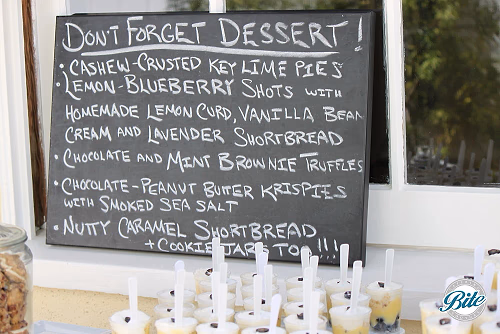 DON'T FORGET DESSERT!
• CASHEW-CRUSTED KEY LIME PIES
• LEMON-BLUEBERRY SHOTS WITH
HOMEMADE LEMON CURD, VANILLA BEAN
CREAM AND LAVENDER SHORTBREAD
• CHOCOLATE AND MINT BROWNIE TRUFFLES
• CHOCOLATE-PEANUT BUTTER KRISPIES
WITH SMOKED SEA SALT
• NUTTY CARAMEL SHORTBREAD
+ COOKIE JARS TOO!!!
Bite